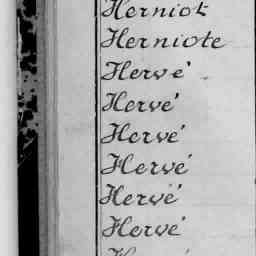 Herniot
Herniote
Hervé
Hervé
Hervé
Hervé
Hervé
Hervé